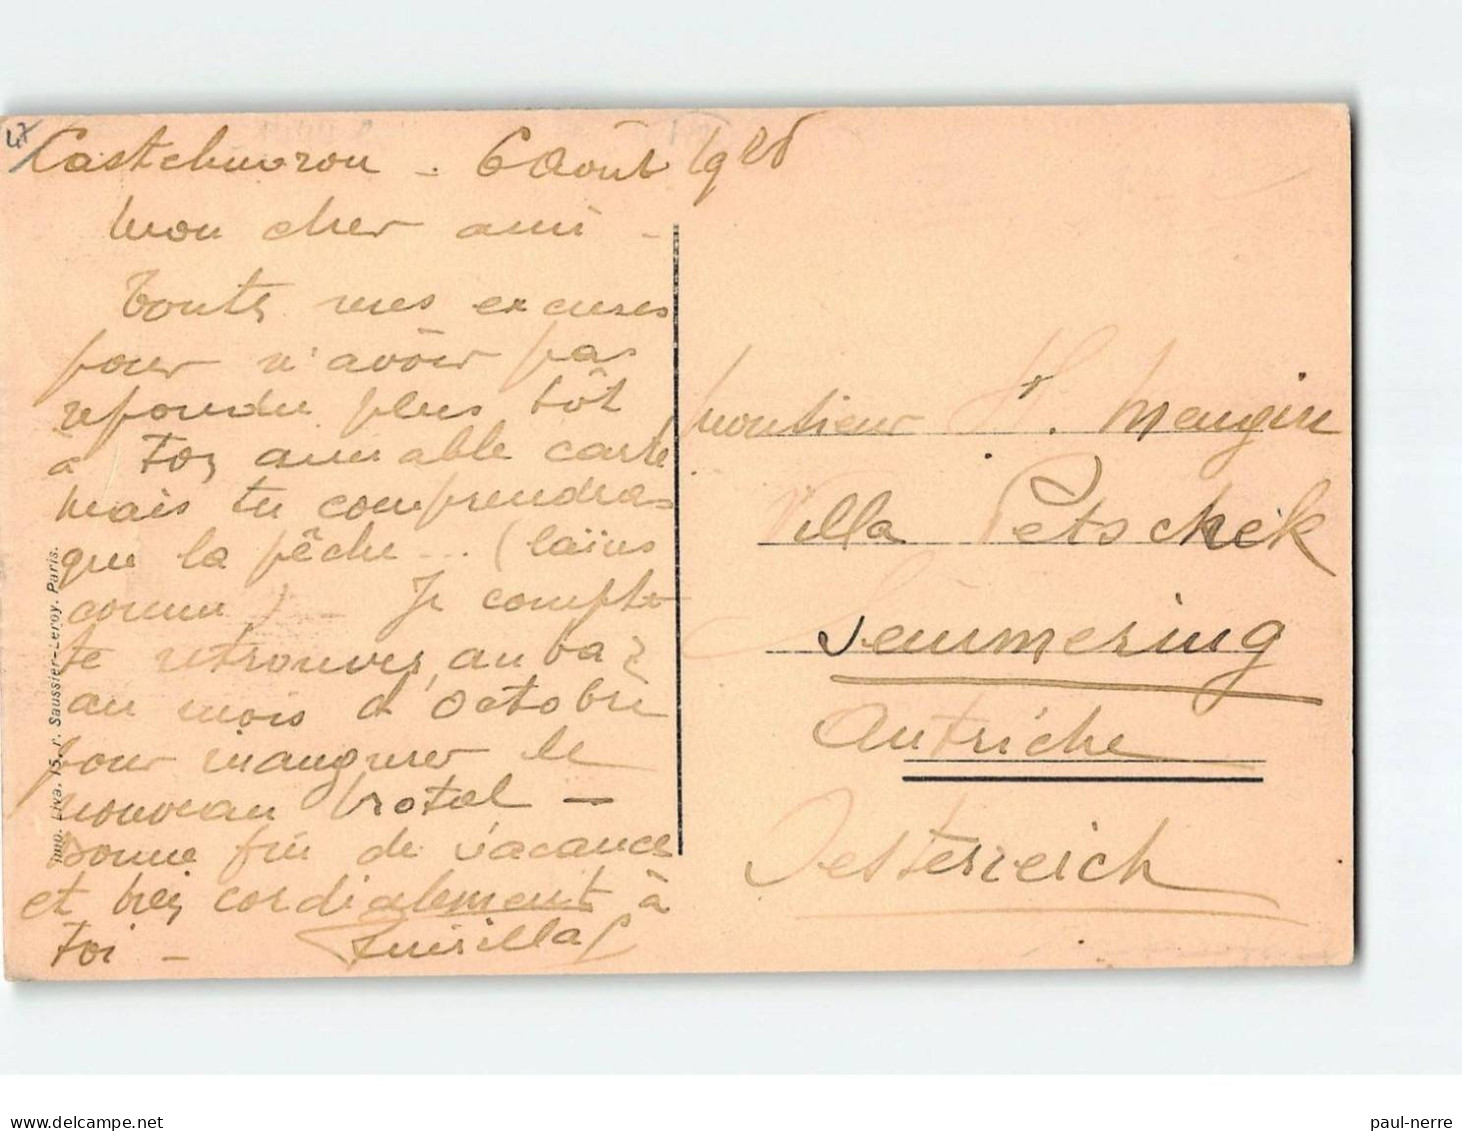 47
Castelmoron - 6 Août 1928
Mon cher ami -
Toutes mes excuses
pour n'avoir pas
repondu plus tôt
a Toy aimable carte
mais tu comprendras
que la pêche ... (laïus
connu) - Je compte
te retrouver au ba
au mois d'octobre
pour inaugurer le
nouveau hotel -
Bonne fin de vacance
et très cordialement à
Toi -
Imp. Liva. 15. r. Saussier-Leroy. Paris.
Monsieur H. Mengin
Villa Petschek
Semmering
Autriche
Oesterreich
paul-nerre